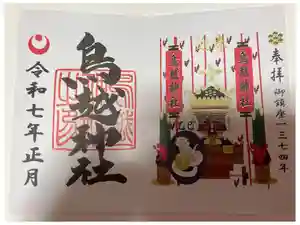 奉拝
御鎮座一三七四年
鳥越神社
鳥越神社
鳥越神社
令和七年正月